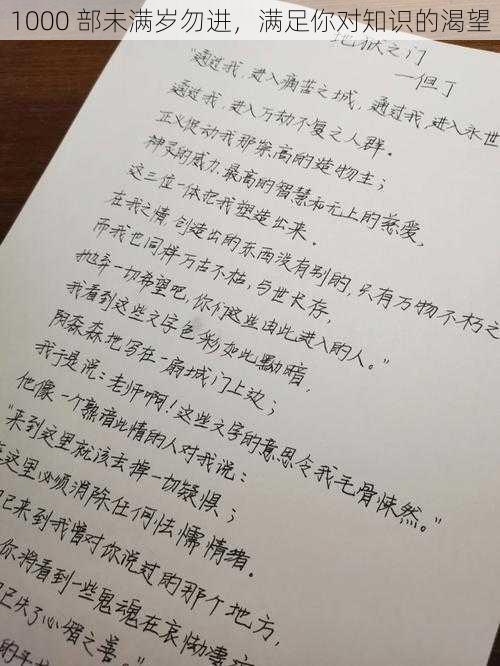 1000 部未满岁勿进，满足你对知识的渴望
地狱之门
—但丁
“通过我，进入痛苦之城，通过我，进入永世
通过我，进入万劫不复之人群。
正义促动我那崇高的造物主；
神灵的威力、最高的智慧和无上的慈爱，
这三位一体把我塑造出来。
在我之情，创造出的东西没有别的，只有万物不朽之
而我也同样万古不枯，与世长存，
抛弃一切希望吧，你们这些由此进入的人。”
我看到这些文字色彩如此黝暗，
阴森森地写在一扇城门上边；
我于是说：老师啊！这些文字的意思令我毛骨悚然。”
他像一个熟谙此情的人对我说：
“来到这里就该去掉一切疑惧；
这里必须消除任何怯懦情绪。
已来到我曾对你说过的那个地方，
你将看到一些鬼魂在哀恸凄
已失了心智之善。”
的手